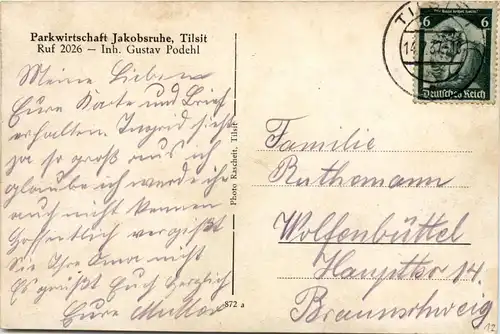 Parkwirtschaft Jakobsruhe, Tilsit
Ruf 2026 — Inh. Gustav Podehl
Meine Lieben
Eure Karte und Brief
erhalten. Ingrid sieht
ja so groß aus ich
glaube ich werde ihr
auch nicht kennen
Hoffentlich vergißt
Sie Ihre Oma nicht
Es grüßt Euch herzlich
Eure Mutter
Photo Rascheit, Tilsit
872 a
6 6
Deutsches Reich
Familie
Ruthemann
Wolfenbüttel
Hauptstr 14.
Braunschweig